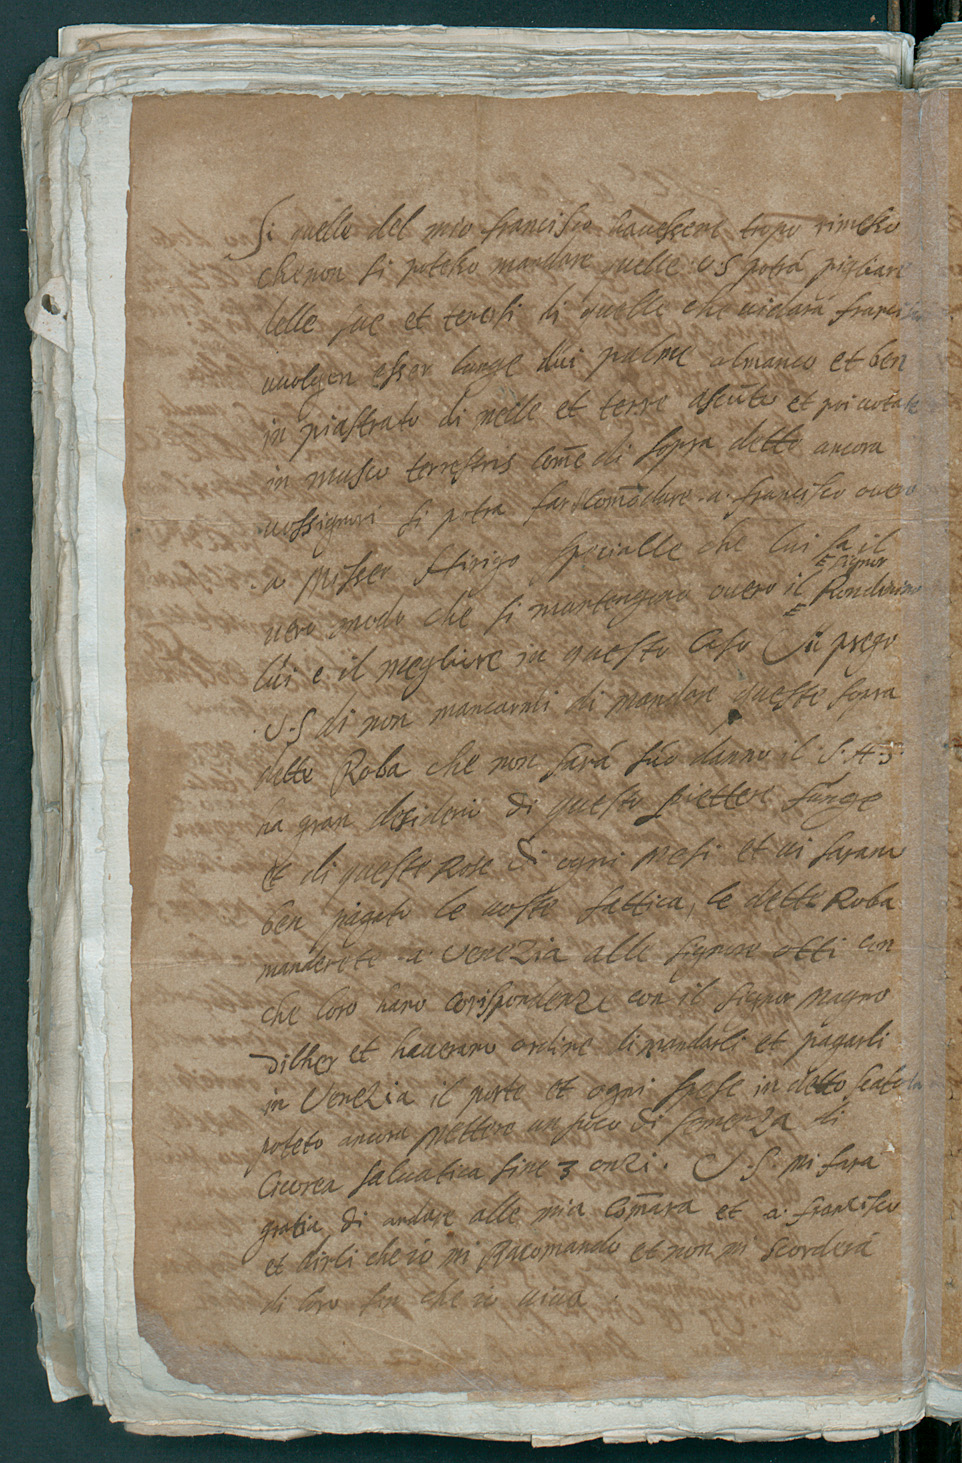 Si quelle del mio francisco havessene tropo rimesso
che non si potesso mandare quelle VS potrá pigliare
delle sue et tenersi di quelle che vidará francisco
vuolgien esser lunge dui palme almanco et ben
in piastrato di melle et terre asciuto et poi
in musco terrestris Come di sopra detto ancora
vossignori si potra far Comodare a francisco overo
a Misser Hirigo specialle che lui sa il
vero modo che si mantengono overo il signor Rondinino
lui e il megliore in questo Caso Vi prego
V.S di non mancarmi di mandare queste sopra
dette Roba che non sará suo danno il S. A S
ha gran desiderio di queste
et di queste Rose di ogni Mesi et vi sarano
ben pagato le voste fattica, le dette Roba
manderete a Venezia alle signore otti con
che loro hano Corispondenze con il signor Magno
Dilher et haverano ordine di mandarli et pagarli
in Venezia il porte et ogni spese in detto scatola
poteto ancora Mettere un poco di semenza di
Cicorea salvatica sine 3 onzi. V.S. mi fara
gratia di andare alle mia Comara et a francisco
et dirli che io mi Racomando et non mi scorderá
di loro sin che io viva.